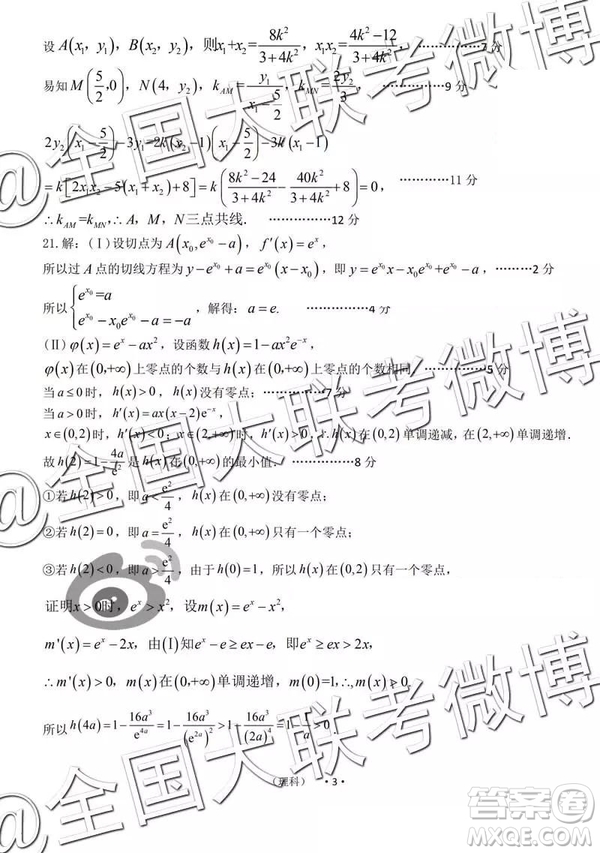 设 A(x₁, y₁), B(x₂, y₂), 则x₁+x₂=8k²/(3+4k²), x₁x₂=(4k²-12)/(3+4k²), ……………7分
易知 M(5/2,0), N(4, y₂), k_AM=y₁/(x₁-5/2), k_MN=2y₂/3, ……………9分
2y₂(x₁-5/2)-3y₁=2k(x₂-1)(x₁-5/2)-3k(x₁-1)
=k[2x₁x₂-5(x₁+x₂)+8]=k((8k²-24)/(3+4k²)-40k²/(3+4k²)+8)=0, ……………11 分
∴k_AM=k_MN,∴A, M, N三点共线. ……………12 分
21.解:(Ⅰ)设切点为 A(x₀,e^(x₀)-a), f′(x)=e^x,
所以过 A 点的切线方程为 y-e^(x₀)+a=e^(x₀)(x-x₀), 即 y=e^(x₀)x-x₀e^(x₀)+e^(x₀)-a, …………2分
所以{e^(x₀)=a
e^(x₀)-x₀e^(x₀)-a=-a, 解得: a=e. ……………4 分
(II) φ(x)=e^x-ax², 设函数 h(x)=1-ax²e^(-x),
φ(x)在(0,+∞)上零点的个数与h(x)在(0,+∞)上零点的个数相同. ……………5分
当 a≤0时, h(x)>0, h(x)没有零点; …………7分
当 a>0时, h′(x)=ax(x-2)e^(-x)
x∈(0,2)时, h′(x)<0; x∈(2,+∞)时, h′(x)>0, h(x)在(0,2)单调递减, 在(2,+∞)单调递增.
故 h(2)=1-4a/e²是h(x)在(0,+∞)的最小值. ……………8 分
①若h(2)>0, 即a<e²/4, h(x)在(0,+∞)没有零点;
②若h(2)=0, 即a=e²/4, h(x)在(0,+∞)只有一个零点;
③若h(2)<0, 即a>e²/4, 由于h(0)=1, 所以h(x)在(0,2)只有一个零点,
证明x>0时, e^x>x², 设m(x)=e^x-x²,
m'(x)=e^x-2x, 由(Ⅰ)知e^x-e≥ex-e, 即e^x≥ex
∴m'(x)>0, m(x)在(0,+∞)单调递增, m(0)=1,∴m(x)>0.
所以 h(4a)=1-16a³/e^(4a)=1-16a³/(e^(2a))²>1-16a³/(2a)⁴=1-1/a>0
(理科) ·3·
@全国大联考微博
@全国大联考微博
答案圈
MXQE.COM